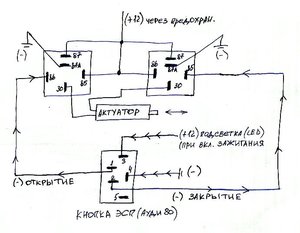 (+12) ЧЕРЕЗ ПРЕДОХРАН.
(-)
87
87A
86
85
30
87
87A
86
85
30
(-)
АКТУАТОР
(+12) ПОДСВЕТКА (LED)
(ПРИ ВКЛ. ЗАЖИГАНИЯ
3
1
4
(-)
5
(-) ОТКРЫТИЕ
(-) ЗАКРЫТИЕ
КНОПКА ЭСП (АУДИ 80)